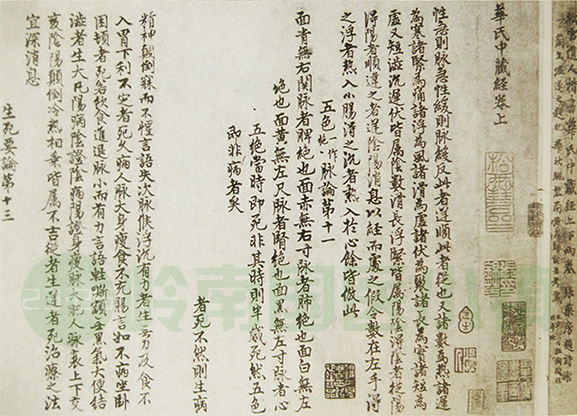 華氏中藏經卷上
性急則脉急性緩則脉緩反此者逆順此者從也又諸數爲熱諸遲
爲寒諸緊爲痛諸浮爲風諸滑爲虛諸伏爲聚諸長爲實諸短爲
虛又短澁沉遲伏皆屬陰數滑長浮緊皆屬陽陰得陰者從陽
得陽者順違之者逆陰陽消息以經而處之假令數在左手得
之浮者熱入小腸得之沉者熱入於心餘皆倣此
五色一作絶脉論第十一
面青無右關脉者脾絶也面赤無右寸脉者肺絶也面白無左
絶也面黃無左尺脉者腎絶也面黑無左寸脉者心
五絶當時即死非其時則半歲死然五色
即非病者矣
者死不然則生病
精神顛倒寐而不惺言語失次脉候浮沉有力者生無力及食不
入胃下利不定者死久病人脉大身瘦食不充腸言如不病坐卧
困頓者死若飲食進退脉小而有力言語輕嘶額無黑氣大便結
澁者生大凡陽病陰證陰病陽證身瘦脉大肥人脉衰上下交
変陰陽顛倒冷熱相乘皆屬不吉從者生逆者死治療之法
宜深消息
生死要論第十三